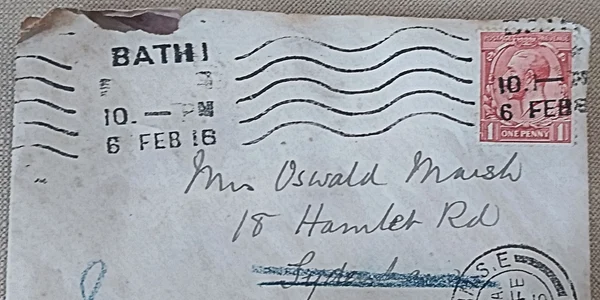 BATH
10. — PM
6 FEB 16
10.
6 FEB
ONE PENNY
1 1
Mrs Oswald Marsh
18 Hamlet Rd
S.E.